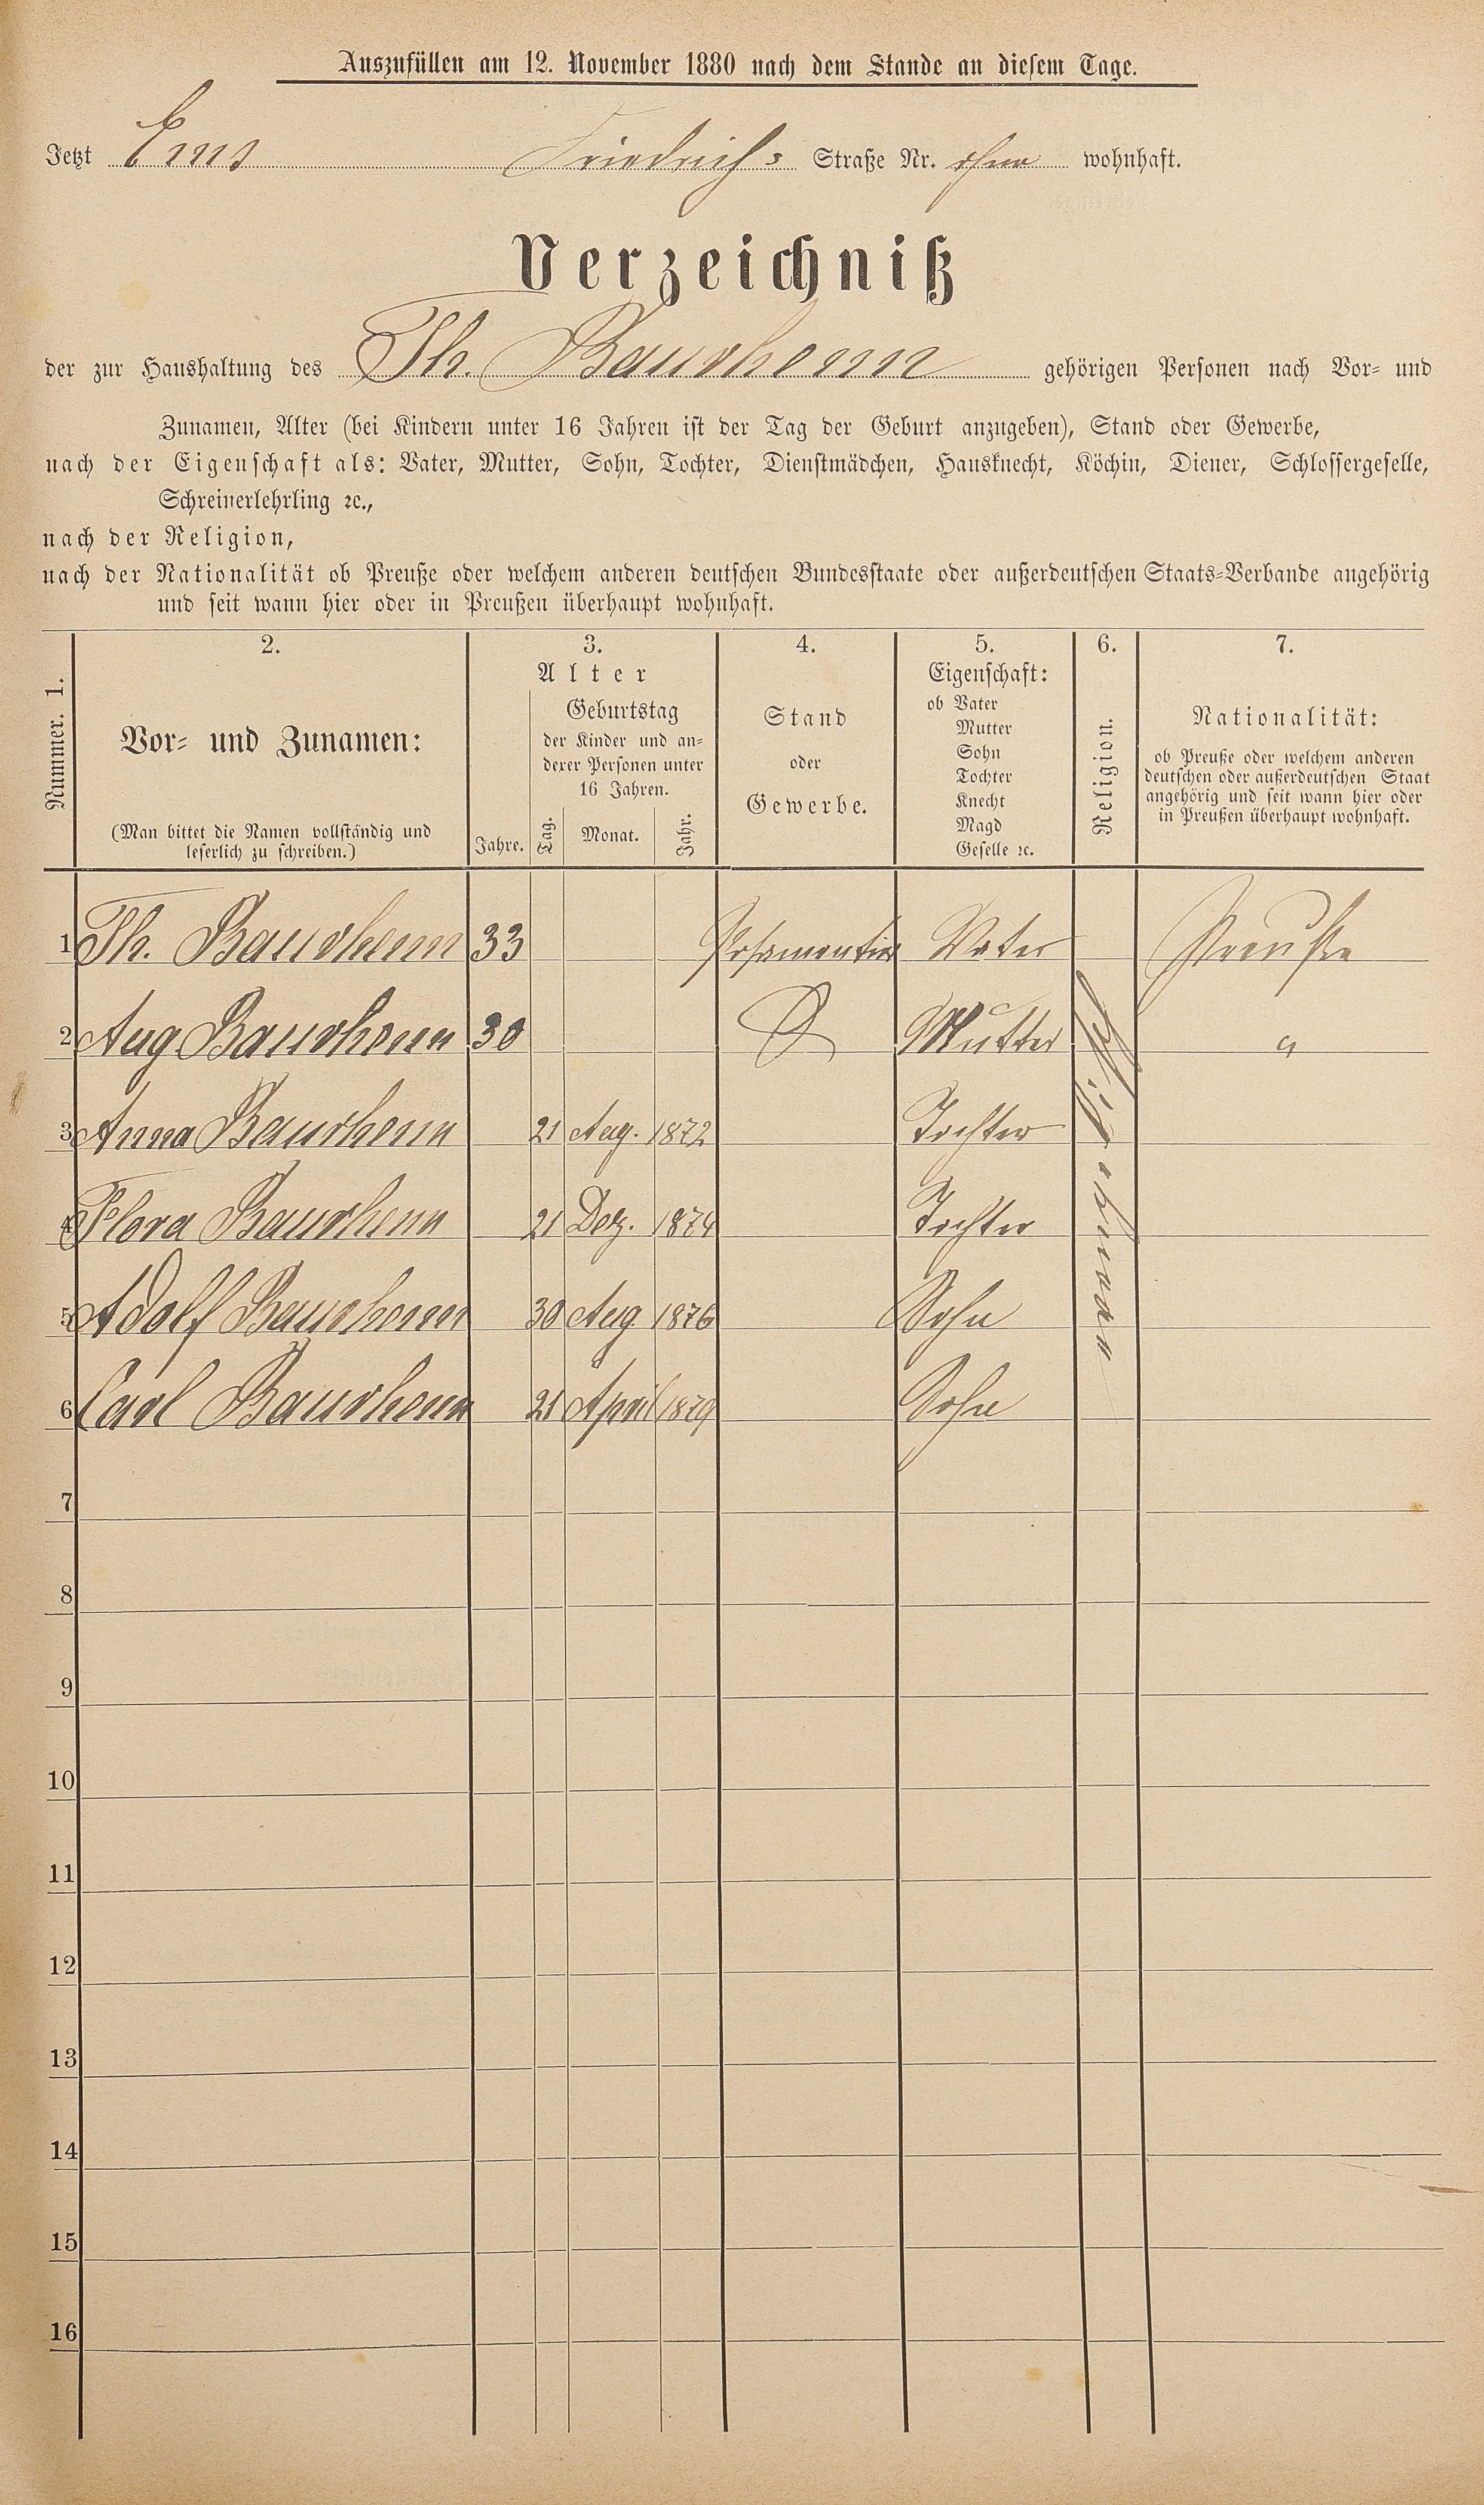 Auszufüllen am 12. November 1880 nach dem Stande an diesem Tage.
Jetzt Ems Friedrichs Straße Nr. ohne wohnhaft.
Verzeichniß
der zur Haushaltung des Th. Baurhenn gehörigen Personen nach Vor- und
Zunamen, Alter (bei Kindern unter 16 Jahren ist der Tag der Geburt anzugeben), Stand oder Gewerbe,
nach der Eigenschaft als: Vater, Mutter, Sohn, Tochter, Dienstmädchen, Hausknecht, Köchin, Diener, Schlossergeselle,
Schreinerlehrling ꝛc.,
nach der Religion,
nach der Nationalität ob Preuße oder welchem anderen deutschen Bundesstaate oder außerdeutschen Staats-Verbande angehörig
und seit wann hier oder in Preußen überhaupt wohnhaft.
Nummer. 1.
2.
Vor- und Zunamen:
(Man bittet die Namen vollständig und
leserlich zu schreiben.)
3.
Alter
Jahre.
Geburtstag
der Kinder und an-
derer Personen unter
16 Jahren.
Tag. Monat. Jahr.
4.
Stand
oder
Gewerbe.
5.
Eigenschaft:
ob Vater
Mutter
Sohn
Tochter
Knecht
Magd
Geselle ꝛc.
6.
Religion.
7.
Nationalität:
ob Preuße oder welchem anderen
deutschen oder außerdeutschen Staat
angehörig und seit wann hier oder
in Preußen überhaupt wohnhaft.
1 Th. Baurhenn 33 Posamentier Vater Preuße
2 Aug. Baurhenn 30 Mutter "
3 Anna Baurhenn 21 Aug. 1872 Tochter
4 Flora Baurhenn 21 Dez. 1874 Tochter
5 Adolf Baurhenn 30 Aug. 1876 Sohn
6 Carl Baurhenn 21 April 1879 Sohn
7
8
9
10
11
12
13
14
15
16